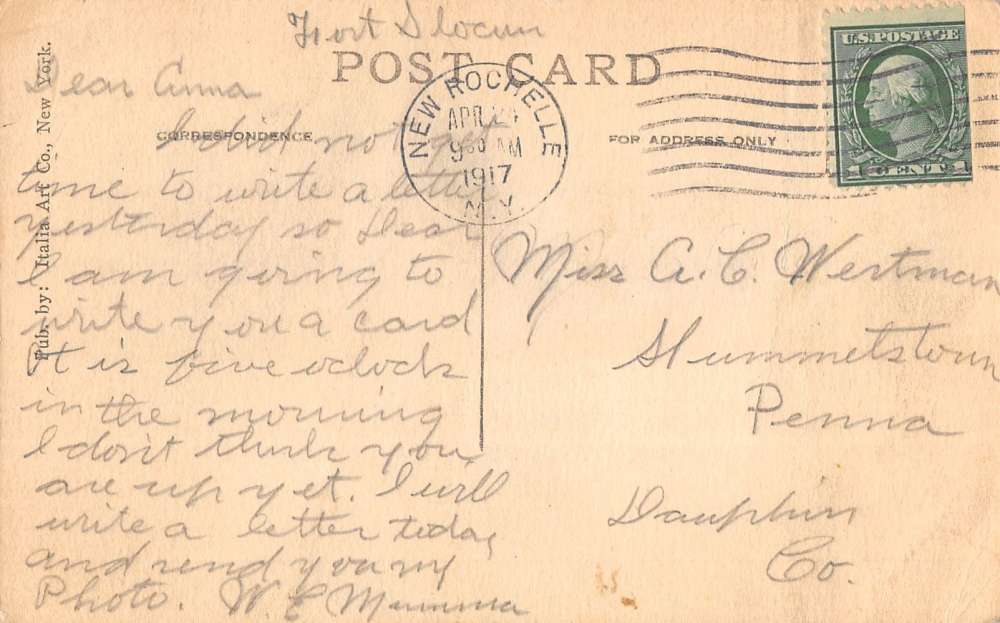 Fort Slocum
POST CARD
Dear Anna
CORRESPONDENCE
I did not get
time to write a letter
yesterday so Dear
I am going to
write you a card
It is five oclock
in the morning
I don't think you
are up yet. I will
write a letter today
and send you my
Photo. W C Mumma
Pub. by: Italia Art Co., New York.
NEW ROCHELLE
APR 24
930 AM
1917
N.Y.
FOR ADDRESS ONLY
U.S. POSTAGE
1 CENT 1
Miss A. C. Westman
Hummelstown
Penna
Dauphin
Co.